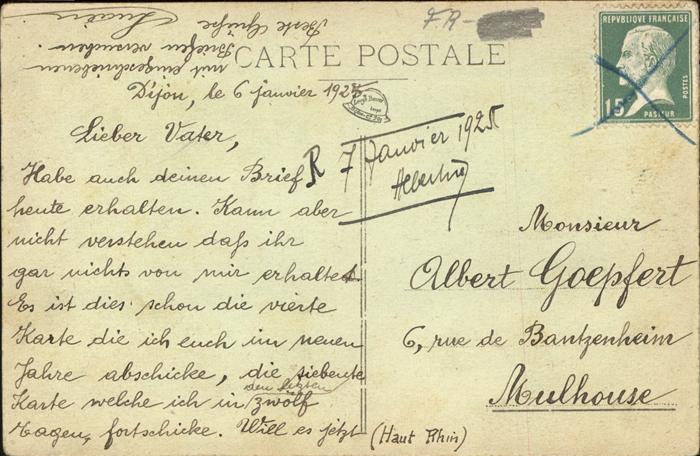 FR-
RÉPUBLIQUE FRANÇAISE
15c
POSTES
PASTEUR
CARTE POSTALE
Dijon, le 6 janvier 1925
Lieber Vater,
Habe auch deinen Brief
heute erhalten. Kann aber
nicht verstehen daß ihr
gar nichts von mir erhaltet.
Es ist dies schon die vierte
Karte die ich euch im neuen
Jahre abschicke, die siebente
den letzten
Karte welche ich in zwölf
Tagen, fortschicke. Will es jetzt
mit eingeschriebenen
Briefen versuchen.
Beste Grüße
Lucien
R 7 Janvier 1925
Monsieur
Albert Goepfert
6, rue de Bantzenheim
Mulhouse
(Haut Rhin)